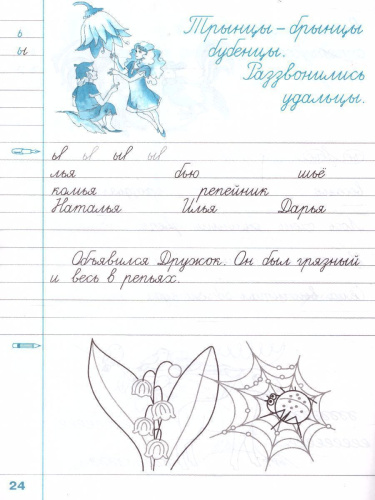 ь
ы
Трынцы-брынцы
бубенцы.
Раззвонились
удальцы.
ья ья ья ья
лья бью шьё
комья репейник
Наталья Илья Дарья
Объявился Дружок. Он был грязный
и весь в репьях.
24